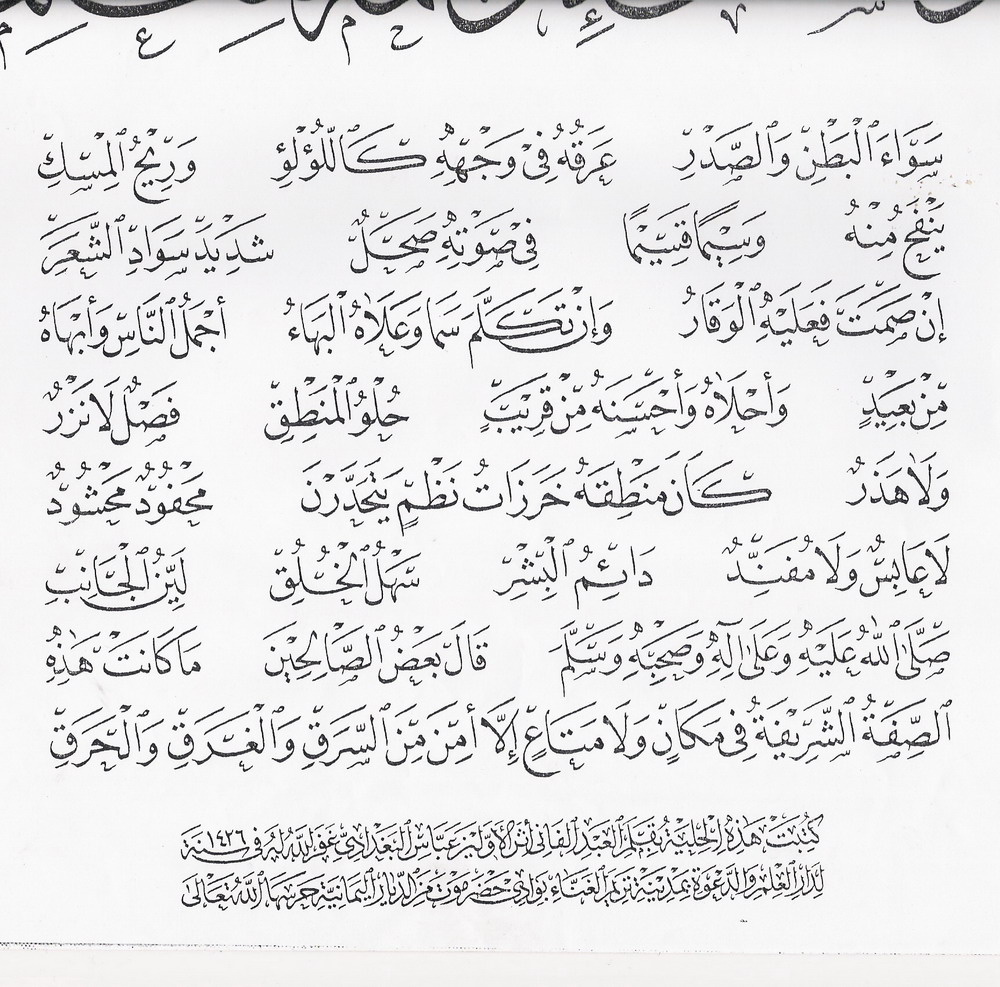 سَوَاءَ الْبَطْنِ وَالصَّدْرِ عَرَقُهُ فِي وَجْهِهِ كَاللُّؤْلُؤِ وَرِيْحُ الْمِسْكِ
يَنْفَحُ مِنْهُ وَسِيْمًا قَسِيْمًا فِي صَوْتِهِ صَحَلٌ شَدِيْدَ سَوَادِ الشَّعَرِ
إِنْ صَمَتَ فَعَلَيْهِ الْوَقَارُ وَإِنْ تَكَلَّمَ سَمَا وَعَلَاهُ الْبَهَاءُ أَجْمَلُ النَّاسِ وَأَبْهَاهُ
مِنْ بَعِيْدٍ وَأَحْلَاهُ وَأَحْسَنُهُ مِنْ قَرِيْبٍ حُلْوُ الْمَنْطِقِ فَصْلٌ لَا نَزْرٌ
وَلَا هَذَرٌ كَأَنَّ مَنْطِقَهُ خَرَزَاتُ نَظْمٍ يَتَحَدَّرْنَ مَحْفُوْدٌ مَحْشُوْدٌ
لَا عَابِسٌ وَلَا مُفَنِّدٌ دَائِمُ الْبِشْرِ سَهْلُ الْخُلُقِ لَيِّنُ الْجَانِبِ
صَلَّى اللّٰهُ عَلَيْهِ وَعَلَى آلِهِ وَصَحْبِهِ وَسَلَّمَ قَالَ بَعْضُ الصَّالِحِيْنَ مَا كَانَتْ هٰذِهِ
الصِّفَةُ الشَّرِيْفَةُ فِي مَكَانٍ وَلَا مَتَاعٍ إِلَّا أَمِنَ مِنَ السَّرَقِ وَالْغَرَقِ وَالْحَرَقِ
كُتِبَتْ هٰذِهِ الْحِلْيَةُ بِقَلَمِ الْعَبْدِ الْفَانِي أَثَرِ الْأَوَّلِيْنَ عَبَّاسِ الْبَغْدَادِيِّ غَفَرَ اللّٰهُ لَهُ فِي سَنَةِ ١٤٢٦
لِدَارِ الْعِلْمِ وَالدَّعْوَةِ بِمَدِيْنَةِ تَرِيْمِ الْغَنَّاءِ بِوَادِي حَضْرَمَوْتَ مِنَ الدِّيَارِ الْيَمَانِيَّةِ حَرَسَهَا اللّٰهُ تَعَالَى